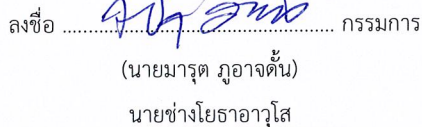 ลงชื่อ ........................................ กรรมการ
(นายมารุต ภูอาจดั้น)
นายช่างโยธาอาวุโส